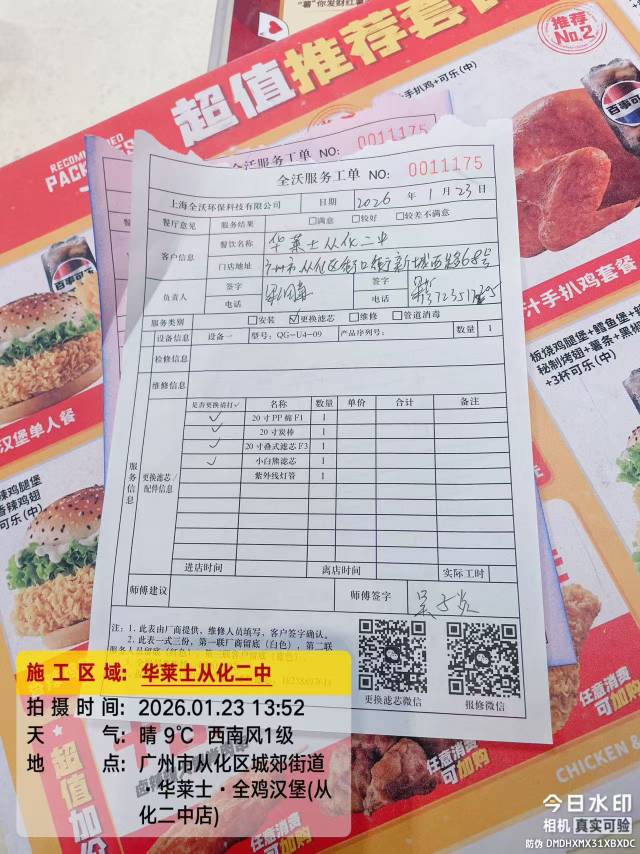 "薯"你发财红薯
超值推荐套
推荐
No.2
RECOMMENDED
PACK
手扒鸡+可乐(中)
百事可乐
全沃服务工单 NO: 0011175
全沃服务工单 NO: 0011175
上海全沃环保科技有限公司 日期 2026 年 1 月 23 日
餐厅意见 服务结果 □满意 □较好 □较差不满意
客户信息 餐饮名称 华莱士从化二中
门店地址 广州市从化区街口街新城西路68号
负责人 签字 签字
电话 电话
服务类别 □安装 ☑更换滤芯 □维修 □管道消毒
服务信息
设备信息 设备一 型号: QG-U4-09 产品序列号: 数量 1
检修信息
维修信息
更换滤芯/配件信息
是否更换请打✓ 名称 数量 单价 合计 备注
✓ 20寸PP棉F1 1
✓ 20寸炭棒 1
✓ 20寸叠式滤芯F3 1
✓ 小白熊滤芯 1
紫外线灯管 1
进店时间 离店时间 实际工时
师傅建议 师傅签字
注: 1. 此表由厂商提供, 维修人员填写, 客户签字确认。
2. 此表一式三份, 第一联厂商留底 (白色), 第二联
更换滤芯微信
报修微信
汁手扒鸡套餐
板烧鸡腿堡+鳕鱼堡+
秘制烤翅+薯条+黑椒
+3杯可乐(中)
汉堡单人餐
辣鸡腿堡
香辣鸡翅
可乐(中)
超值加价
任意消费
可加购
任意消费
可加购
任意消费
可加购
CHICKEN &
施工区域: 华莱士从化二中
拍摄时间: 2026.01.23 13:52
天气: 晴 9℃ 西南风1级
地点: 广州市从化区城郊街道
·华莱士·全鸡汉堡(从
化二中店)
今日水印
相机 真实可验
防伪 DMDHXMX31XBXDC